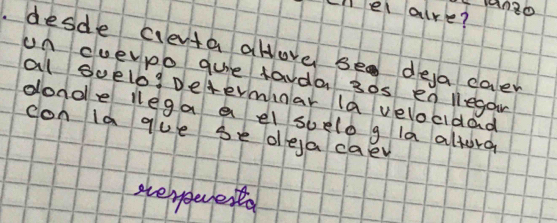 en el aire? lanzo
. desde cierta altura se deja caer
un cuerpo que tarda 30s en llegar
al suelo: Determinar la velocidad
donde llega a el suelo y la altura
con la que se deja caer
respuesta